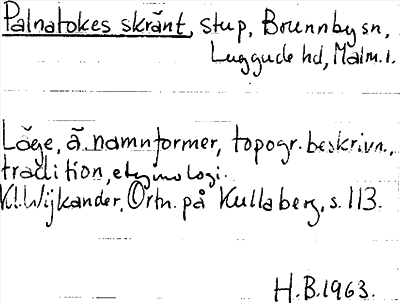 Palnatokes skränt, stup, Brunnby sn,
Luggude hd, Malm. l.
Läge, ä. namnformer, topogr. beskrivn.,
tradition, etymologi.
Kl. Wijkander, Ortn. på Kullaberg, s. 113.
H.B. 1963.